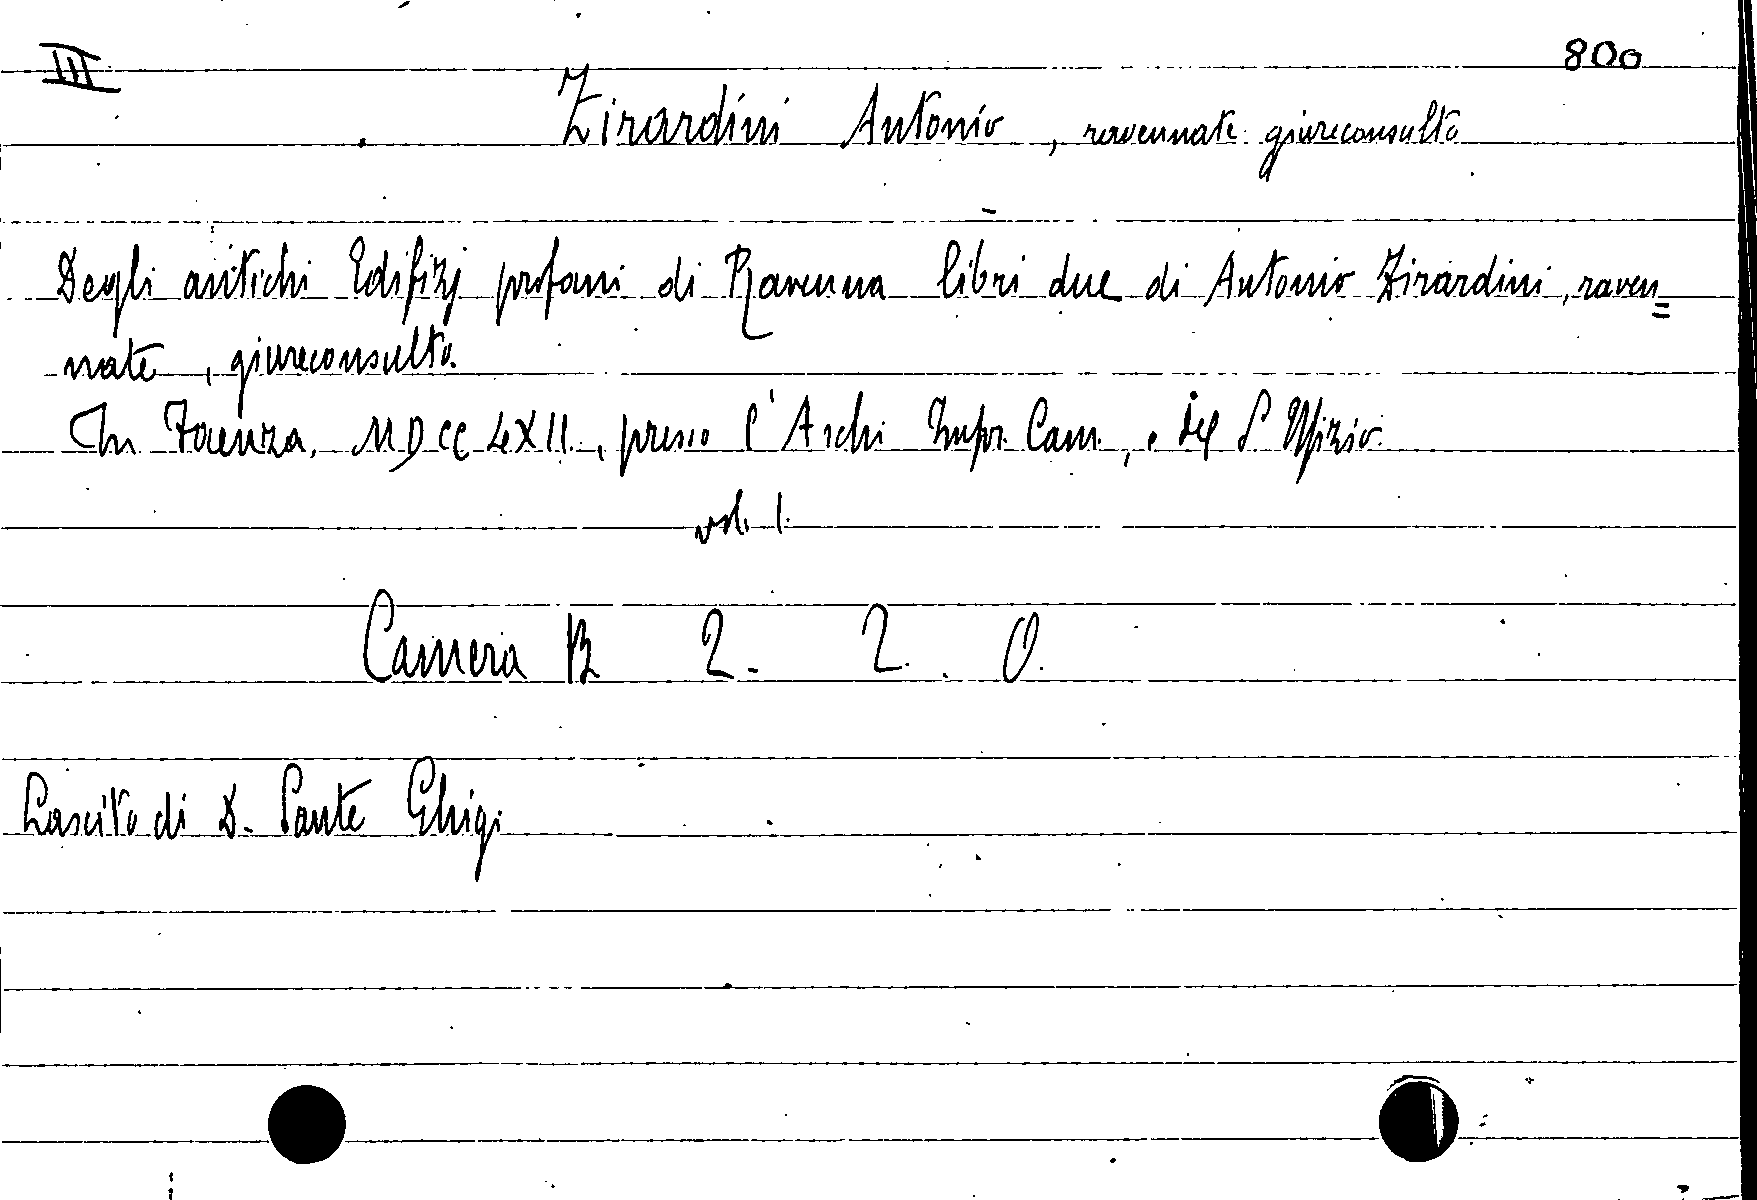 III
800
Zirardini Antonio, ravennate giureconsulto
Degli antichi Edifizj profani di Ravenna libri due di Antonio Zirardini, raven=
nate, giureconsulto.
In Faenza, MDCCLXII., presso l'Archi Impr. Cam., e del S. Ufizio.
vol. 1.
Camera B 2. 2. 0.
Lascito di D. Sante Ghigi